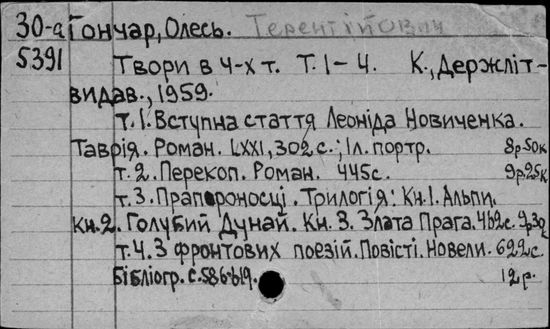 30-а Гончар, Олесь. Терентійович
5391 Твори в 4-х т. Т. 1-4. К., Держліт-
видав., 1959.
т. 1. Вступна стаття Леоніда Новиченка.
Таврія. Роман. LXXI, 302с., іл. портр. 8р.50к
т. 2. Перекоп. Роман. 445с. 9р.25к
т. 3. Прапороносці. Трилогія: Кн. 1. Альпи.
Кн. 2. Голубий Дунай. Кн. 3. Злата Прага. 462с. 9р30к
т. 4. З фронтових поезій. Повісті. Новели. 622с.
Бібліогр. с. 586-619. 12р.